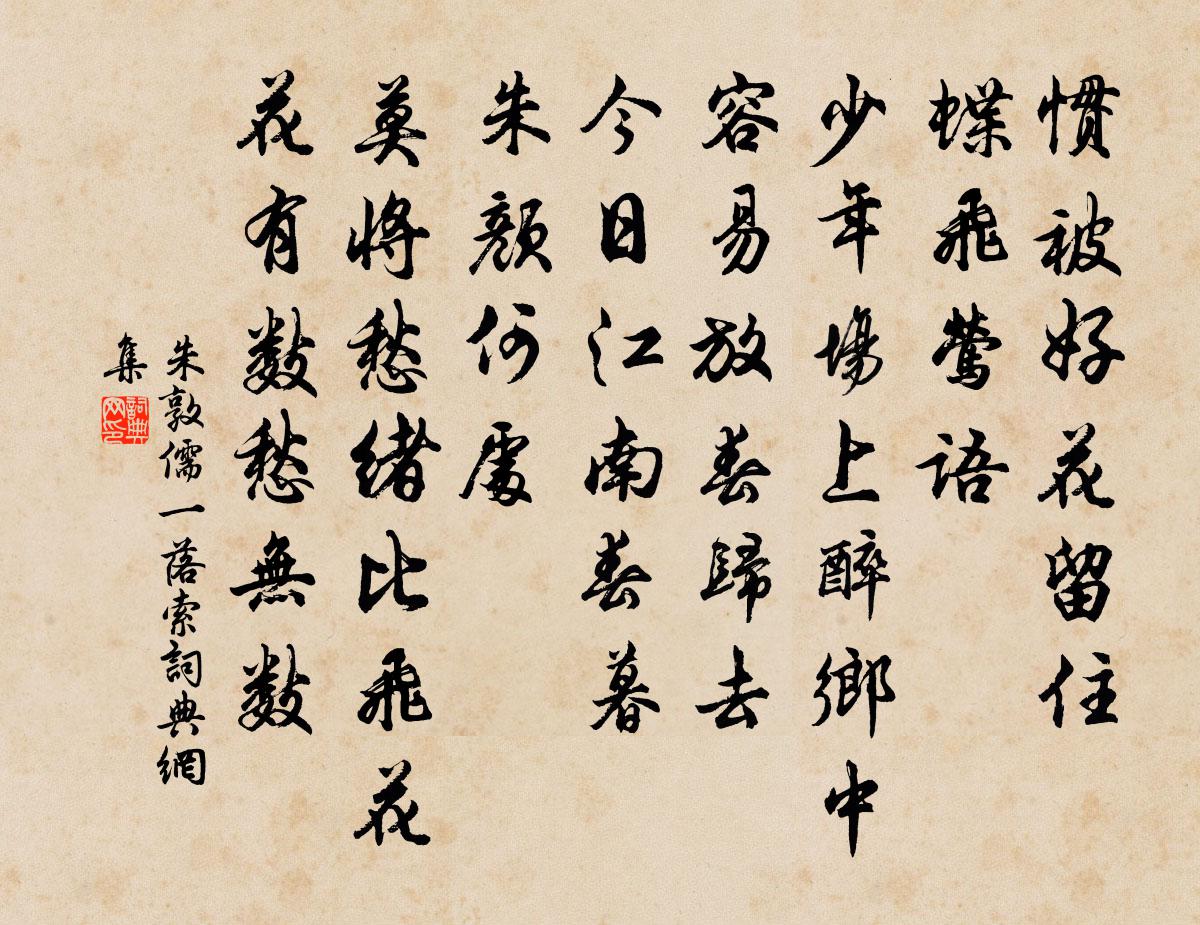 慣被好花留住
蝶飛鶯語
少年場上醉鄉中
容易放春歸去
今日江南春暮
朱顏何處
莫將愁緒比飛花
花有數愁無數
朱敦儒一落索詞典網
集
詞典
网印